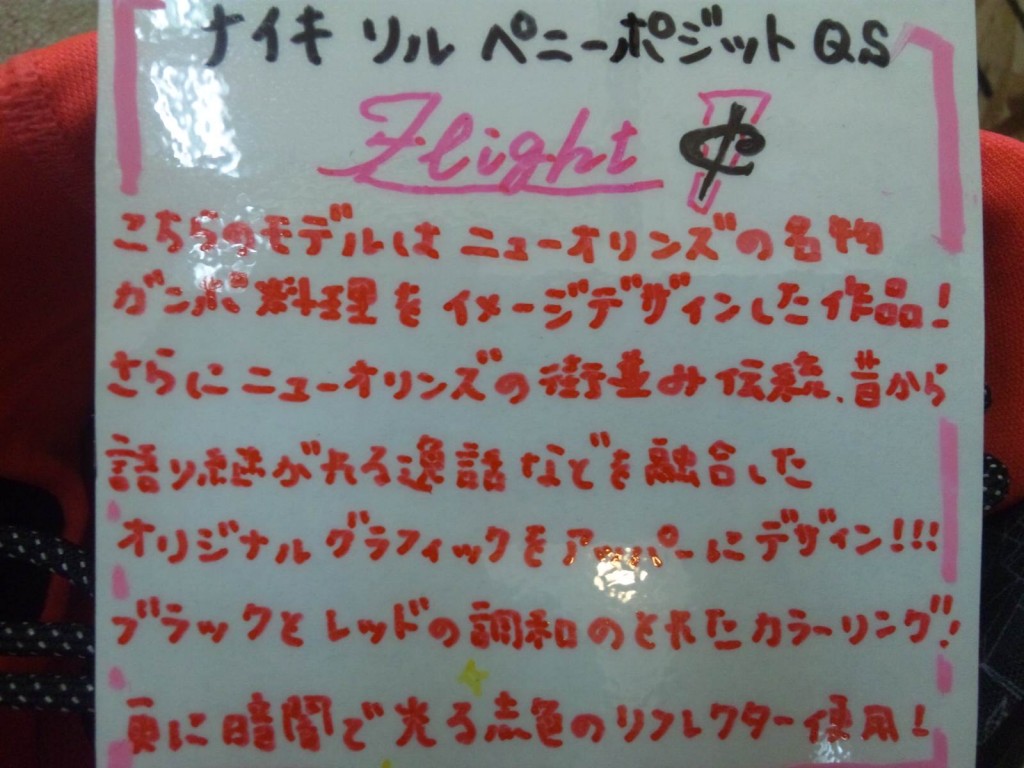 ナイキ リル ペニーポジット QS
Flight ¢
こちらのモデルは ニューオリンズの名物
ガンボ料理をイメージデザインした作品!
さらにニューオリンズの街並み伝統、昔から
語り継がれる逸話などを融合した
オリジナルグラフィックをアッパーにデザイン!!!
ブラックとレッドの調和のとれたカラーリング!
更に暗闇で光る赤色のリフレクター使用!